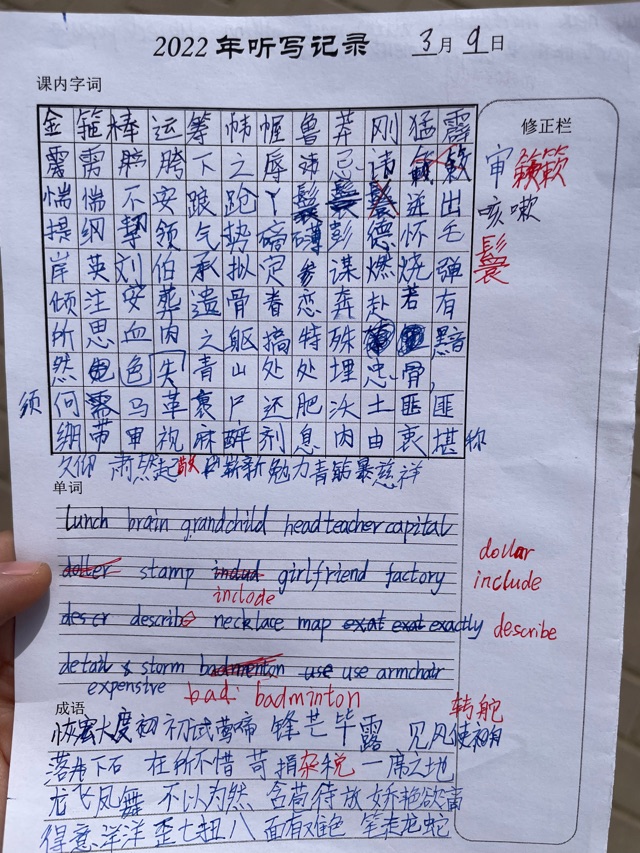 2022年听写记录 3月9日
课内字词
修正栏
金箍棒运筹帷幄鲁莽刚猛霹
雳雳胯胯下之辱讳忌讳 籁
审籁籁
惴惴不安踉跄丫鬟鬟 迸出
咳嗽
提纲挈领气势磅礴彭德怀毛
鬟
岸英刘伯承拟定参谋燃烧弹
倾注安葬遗骨眷恋奔赴若有
所思血肉之躯搞特殊 黯
然 色失青山处处埋忠骨,
须何需马革裹尸还肥沃土匪匪
绷带审视麻醉剂息肉由衷堪称
久仰 肃然起敬 崭新 勉力 青筋暴 慈祥
单词
lunch brain grandchild headteacher capital
doller stamp indud girlfriend factory
dollar
include
include
descr describ necklace map exat exat exactly
describe
detail & storm badmenton use use armchair
expensive bad: badminton
成语
转舵
恢宏大度 初 初试莺啼 锋芒毕露 见风使
落井下石 在所不惜 苛捐杂税 一席之地
龙飞凤舞 不以为然 含苞待放 娇艳欲滴
得意洋洋 歪七扭八 面有难色 笔走龙蛇